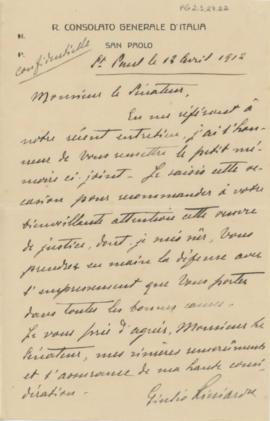 PG2.S.27.22
R. CONSOLATO GENERALE D'ITALIA
SAN PAOLO
N.
P.
Confidentielle
le 18 Avril 1912
Monsieur le Sénateur,
En me référant à
notre récent entretien, j'ai l'hon-
neur de Vous remettre le petit mé-
moire ci-joint. Je saisis cette oc-
casion pour recommander à votre
bienveillante attention cette oeuvre
de justice, dont, je suis sûr, Vous
prendrez en main la défense avec
l'empressement que Vous portez
dans toutes les bonnes causes.
Je vous prie d'agréer, Monsieur le
Sénateur, mes sincères remerciements
et l'assurance de ma haute consi-
dération.
Giulio